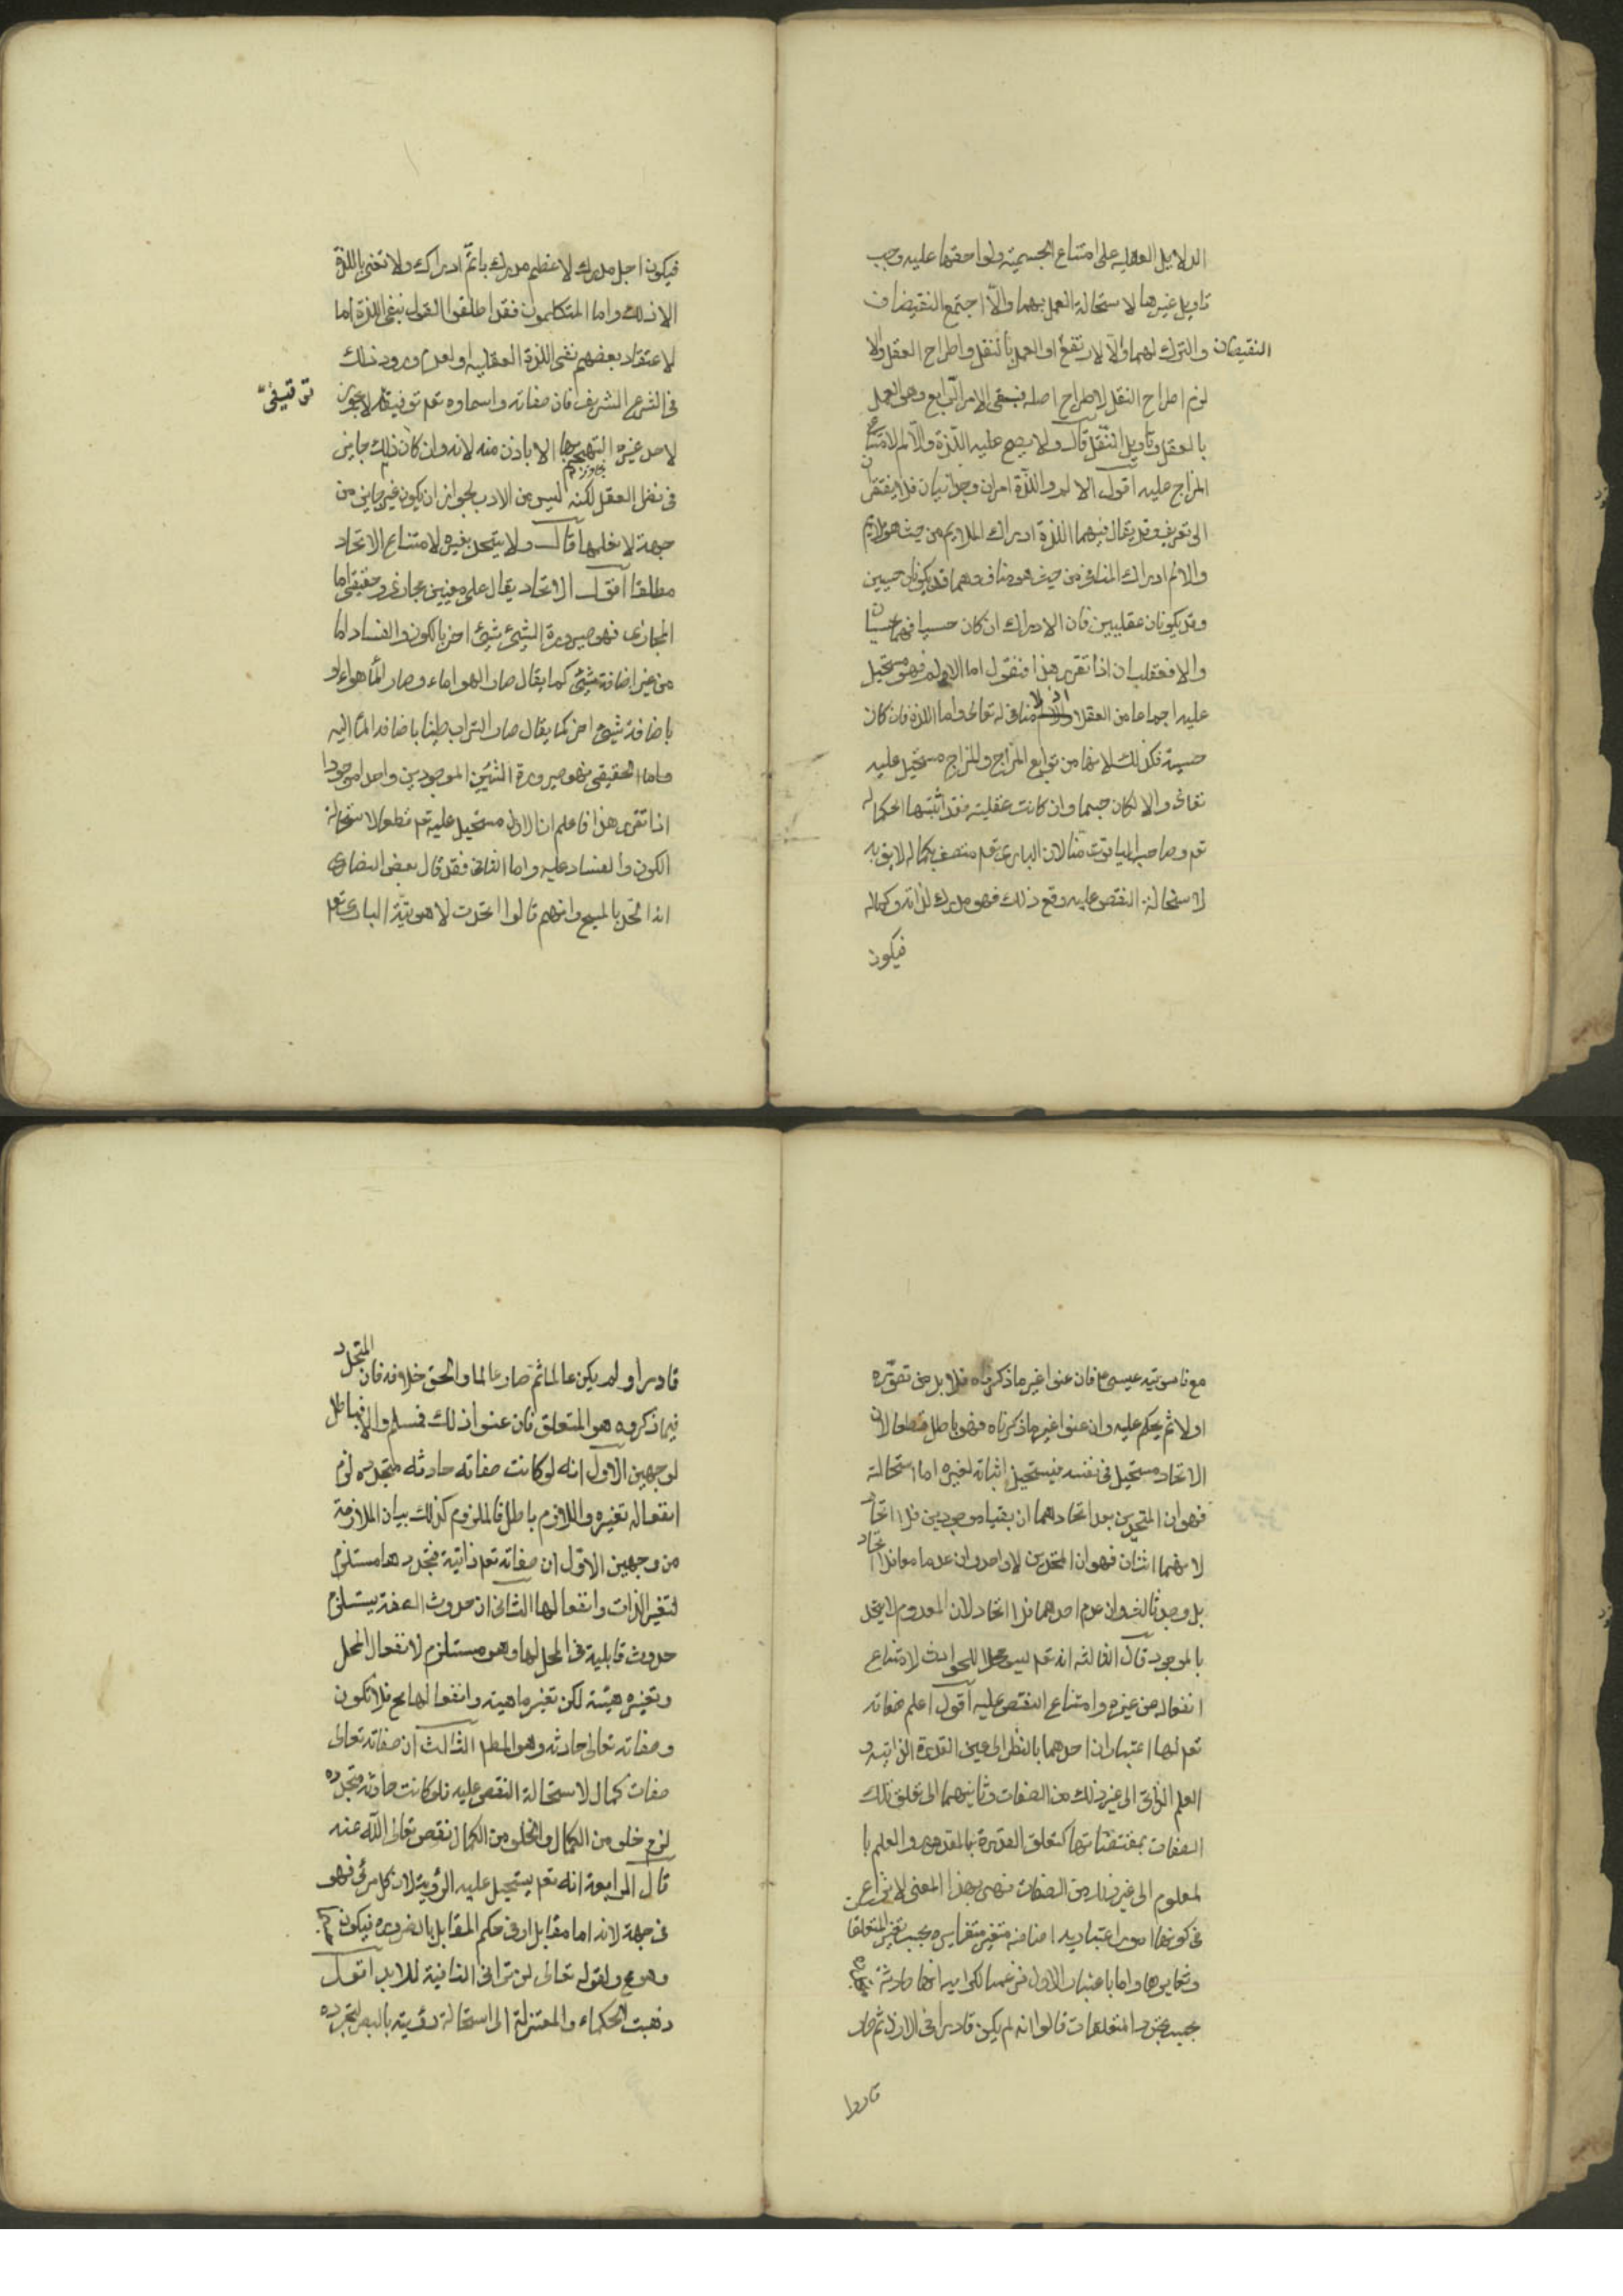 الدلايل العقليه على امتناع الجسمية ولواحقها عليه وجب
تاويل غيرها لاستحالة العمل بهما والّا اجتمع النقيضان
والترك لهما والّا لارتفع او العمل بالنقل واطراح العقل والا
النقيضان
لزم اطراح النقل لاطراح اصله فبقى الامر الرّابع وهو العمل
بالعقل وتاويل النّقل قال ولا يصح عليه اللّذة والّا لم لامتناع
المزاج عليه اقول الالم واللّذة امران وجدانيان فلا يفتقران
الى تعريف وقد يقال فيهما اللذة ادراك الملايم من حيث هو ملايم
والالم ادراك المنافر من حيث هو مناف وهما قد يكونان حسيين
وقد يكونان عقليين فان الادراك ان كان حسيا فهما حسيان
والا فعقليان اذا تقرر هذا فنقول اما الالم فهو مستحيل
عليه اجماعا من العقلا اذ لا منافى له تعالى واما اللذة فان كان
حسية فكذلك لانها من توابع المزاج والمزاج مستحيل عليه
تعالى والا لكان جسما وان كانت عقلية فقد اثبتها الحكما له
تعم وصاحب الياقوت منا لان البارى تعم متصف بكماله لايق به
لاستحالة النقص عليه ومع ذلك فهو مدرك لذاته وكماله
فيكون
فيكون اجل مدرك لاعظم مدرك باتمّ ادراك ولا نعنى باللذة
الا ذلك واما المتكلمون فقد اطلقوا القول بنفى اللذة اما
لاعتقاد بعضهم نفى اللذة العقليه او لعدم ورود ذلك
فى الشرع الشريف فان صفاته واسماوه تعم توفيقيه لا يجوز
توقيفىّ
لاحد غيره التهجم بها الا باذن منه لانه وان كان ذلك جايز
فى نظر العقل لكنه ليس من الادب لجواز ان يكون غير جايز من
جهة لا نعلمها قال ولا يتحد بغيره لامتناع الاتحاد
مطلقا اقول الاتحاد يقال على معنيين مجازى وحقيقى اما
المجازى فهو صيرورة الشىئ شيئ اخر بالكون والفساد اما
من غير اضافة شيئ كما يقال صار الهوا ماء وصار الماَ هواء او
باضافة شيئ اخر كما يقال صار التراب طينا باضافة الماَ اليه
واما الحقيقى فهو صيرورة الشيئين الموجودين واحدا موجودا
اذا تقرر هذا فاعلم ان الاول مستحيل عليه تعم قطعا لاستحالة
الكون والفساد عليه واما الثانى فقد قال بعض النصارى
انه اتحد بالمسيح وانهم قالوا اتحدت لاهوتيّة البارى تعم
مع ناسوتية عيسى ع فان عنوا غير ما ذكرناه فلا بد من تصوّره
اولا ثم يحكم عليه وان عنوا غير ما ذكرناه فهو باطل قطعا لان
الاتحاد مستحيل فى نفسه فيستحيل اثباته لغيره اما استحالته
فهو ان المتحدين بعد اتحادهما ان بقيا موجودين فلا اتحاد
لانهما اثنان فهو ان المتحدين لا واحد وان عدما معا فلا اتحاد
بل وجد ثالث وان عدم احدهما فلا اتحاد لان المعدوم لا يتحد
بالموجود قال الثالثه انه تعم ليس محلا للحوادث لامتناع
انفعاله من غيره وامتناع النقص عليه اقول اعلم صفاته
تعم لها اعتباران احدهما بالنظر الى عين القدرة الذاتيه و
العلم الذاتى الى غير ذلك من الصفات وثانيهما الى تعلق تلك
الصفات بمقتضاتها كتعلق القدرة بالمقدور والعلم با
لمعلوم الى غير ذلك من الصفات فهى بهذا المعنى لا نزاع
فى كونها امورا اعتباريه اضافية متغيرة متغايره بحسب تغير المتعلقات
وتغايرها واما باعتبار الاول فزعمت الكراميه انها حادثة
بحسب تجدد المتعلقات قالوا انه لم يكن قادرا فى الازل ثم صار
قادرا
قادرا ولم يكن عالما ثم صار عالما والحق خلافه فان المتجدد
فيما ذكروه هو المتعلق فان عنوا ذلك فمسلم والا فباطل
لوجهين الاول انه لو كانت صفاته حادثه متجدده لزم
انفعاله تغيره واللازم باطل فالملزوم كذلك بيان الملازمة
من وجهين الاوّل ان صفاته تعم ذاتية فتجددها مستلزم
لتغير الذات وانفعالها الثانى ان حدوث الصفة يستلزم
حدوث قابلية فى المحل لها وهو مستلزم لانفعال المحل
وتغيره هيئة لكن تغير ماهيته وانفعالها مح فلا تكون
وصفاته تعالى حادثه وهو المطم الثالث ان صفاته تعالى
صفات كمال لاستحالة النقص عليه فلو كانت حادثه متجدده
لزم خلوه من الكمال والخلو من الكمال نقص تعالى اللّه عنه
قال الرابعة انه تعم يستحيل عليه الرؤية لان كل مرئى فهو
فى جهة لانه اما مقابل او فى حكم المقابل بالضروره فيكون جسما
وهو مح ولقوله تعالى لن ترانى النافية للابد اقول
ذهبت الحكماء والمعتزلة الى استحالة رؤيته بالبصر لتجرده